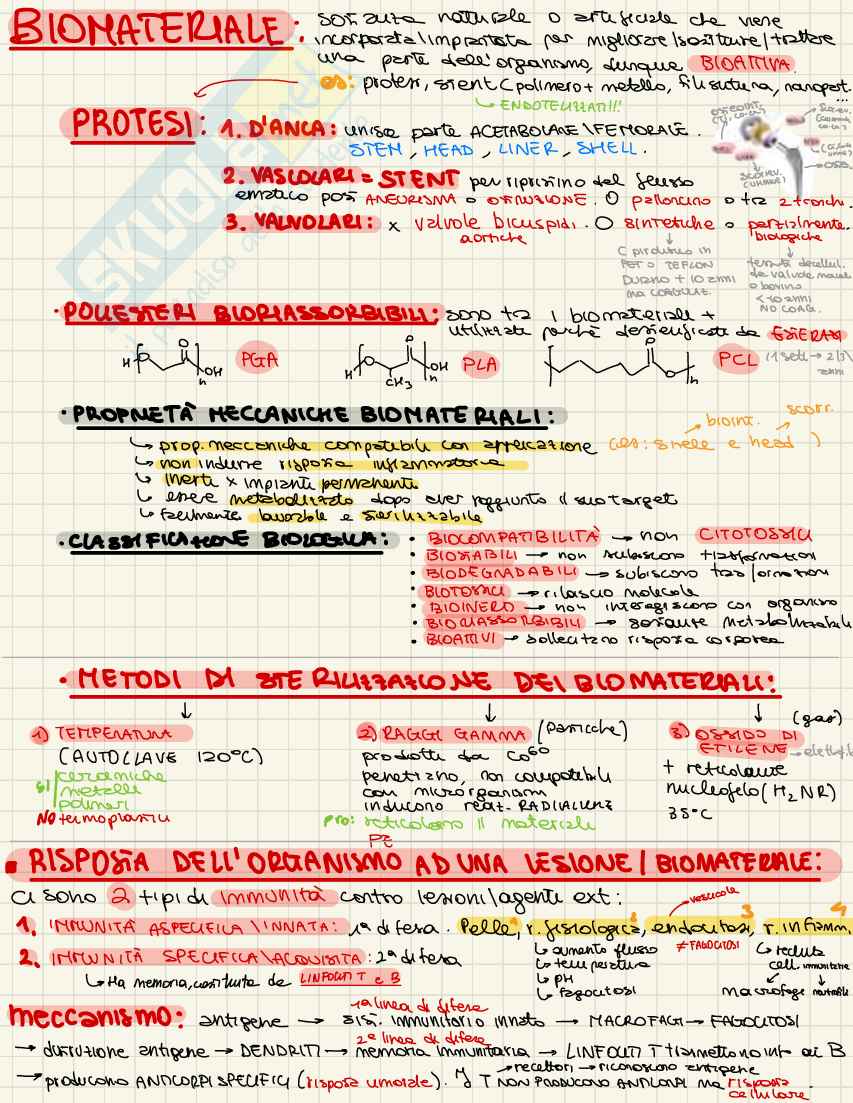 BIOMATERIALE: sostanza naturale o artificiale che viene
incorporata/impiantata per migliorare/sostituire/trattare
una parte dell'organismo, dunque BIOATTIVA.
es: protesi, stent (polimero + metallo, fili sutura, nanopart.
...
ENDOTELIZZATI!!!
PROTESI: 1. D'ANCA: unisce parte ACETABOLARE\FEMORALE.
STEM, HEAD, LINER, SHELL.
osteoint.
OSSO
2. VASCOLARI = STENT per ripristino del flusso
ematico post ANEURISMA o OSTRUZIONE. O palloncino o tra 2 tronchi.
3. VALVOLARI: x valvole bicuspidi. O sintetiche o parzialmente
aortiche biologiche
C pirolitico in
PET O TEFLON
DURANO + 10 anni
ma COAGULAZ.
tessuto decellul.
da valvole maiale
o bovino
<10 anni
NO COAG.
SKUOLA.net
il paradiso dello studente
· POLIESTERI BIORIASSORBIBILI: sono tra i biomateriali +
utilizzati perché desterificate da ESTERASI
PGA PLA PCL (1 sett → 2\3\
anni
H O O OH n
H O O OH n CH3
O O n
· PROPRIETÀ MECCANICHE BIOMATERIALI:
bioint. scorr.
↳ prop. meccaniche compatibili con applicazione (es: shell e head)
↳ non indurre risposta infiammatoria
↳ inerti x impianti permanenti
↳ essere metabolizzato dopo aver raggiunto il suo target
↳ facilmente lavorabile e sterilizzabile
· CLASSIFICAZIONE BIOLOGICA: • BIOCOMPATIBILITÀ → non CITOTOSSICI
• BIOSTABILI → non subiscono trasformazioni
• BIODEGRADABILI → subiscono trasformazioni
• BIOTOSSICI → rilascio molecole
• BIOINERTI → non interagiscono con organismo
• BIORIASSORBIBILI → sostanze metabolizzabili
• BIOATTIVI → sollecitano risposta corporea
· METODI DI STERILIZZAZIONE DEI BIOMATERIALI:
1) TEMPERATURA
(AUTOCLAVE 120°C)
sì ceramiche
metalli
polimeri
NO termoplastici
2) RAGGI GAMMA (particelle)
prodotti da Co60
penetrano, non compatibili
con microrganismi
inducono reaz. RADIALICHE
pro: reticolano il materiale
PE
3) OSSIDO DI (gas)
ETILENE
+ reticolante
nucleofilo (H2NR)
35°C
▪ RISPOSTA DELL'ORGANISMO AD UNA LESIONE/BIOMATERIALE:
Ci sono 2 tipi di immunità contro lesioni\agenti ext:
vescicole
1. IMMUNITÀ ASPECIFICA\INNATA: 1a difesa. Pelle,1 r. fisiologica,2 endocitosi,3 r. infiamm.4
≠ FAGOCITOSI
2. IMMUNITÀ SPECIFICA\ACQUISITA: 2a difesa
↳ Ha memoria, costituita da LINFOCITI T e B
↳ aumento flusso
↳ temperatura
↳ pH
↳ fagocitosi
↳ recluta
cell. immunitarie
macrofagi neutrofili
1a linea di difesa
meccanismo: antigene → sist. immunitario innato → MACROFAGI → FAGOCITOSI
2a linea di difesa
→ distruzione antigene → DENDRITI → memoria immunitaria → LINFOCITI T trasmettono info ai B
recettori → riconoscono antigene
→ producono ANTICORPI SPECIFICI (risposta umorale). I T NON PRODUCONO ANTICORPI ma risposta
cellulare.